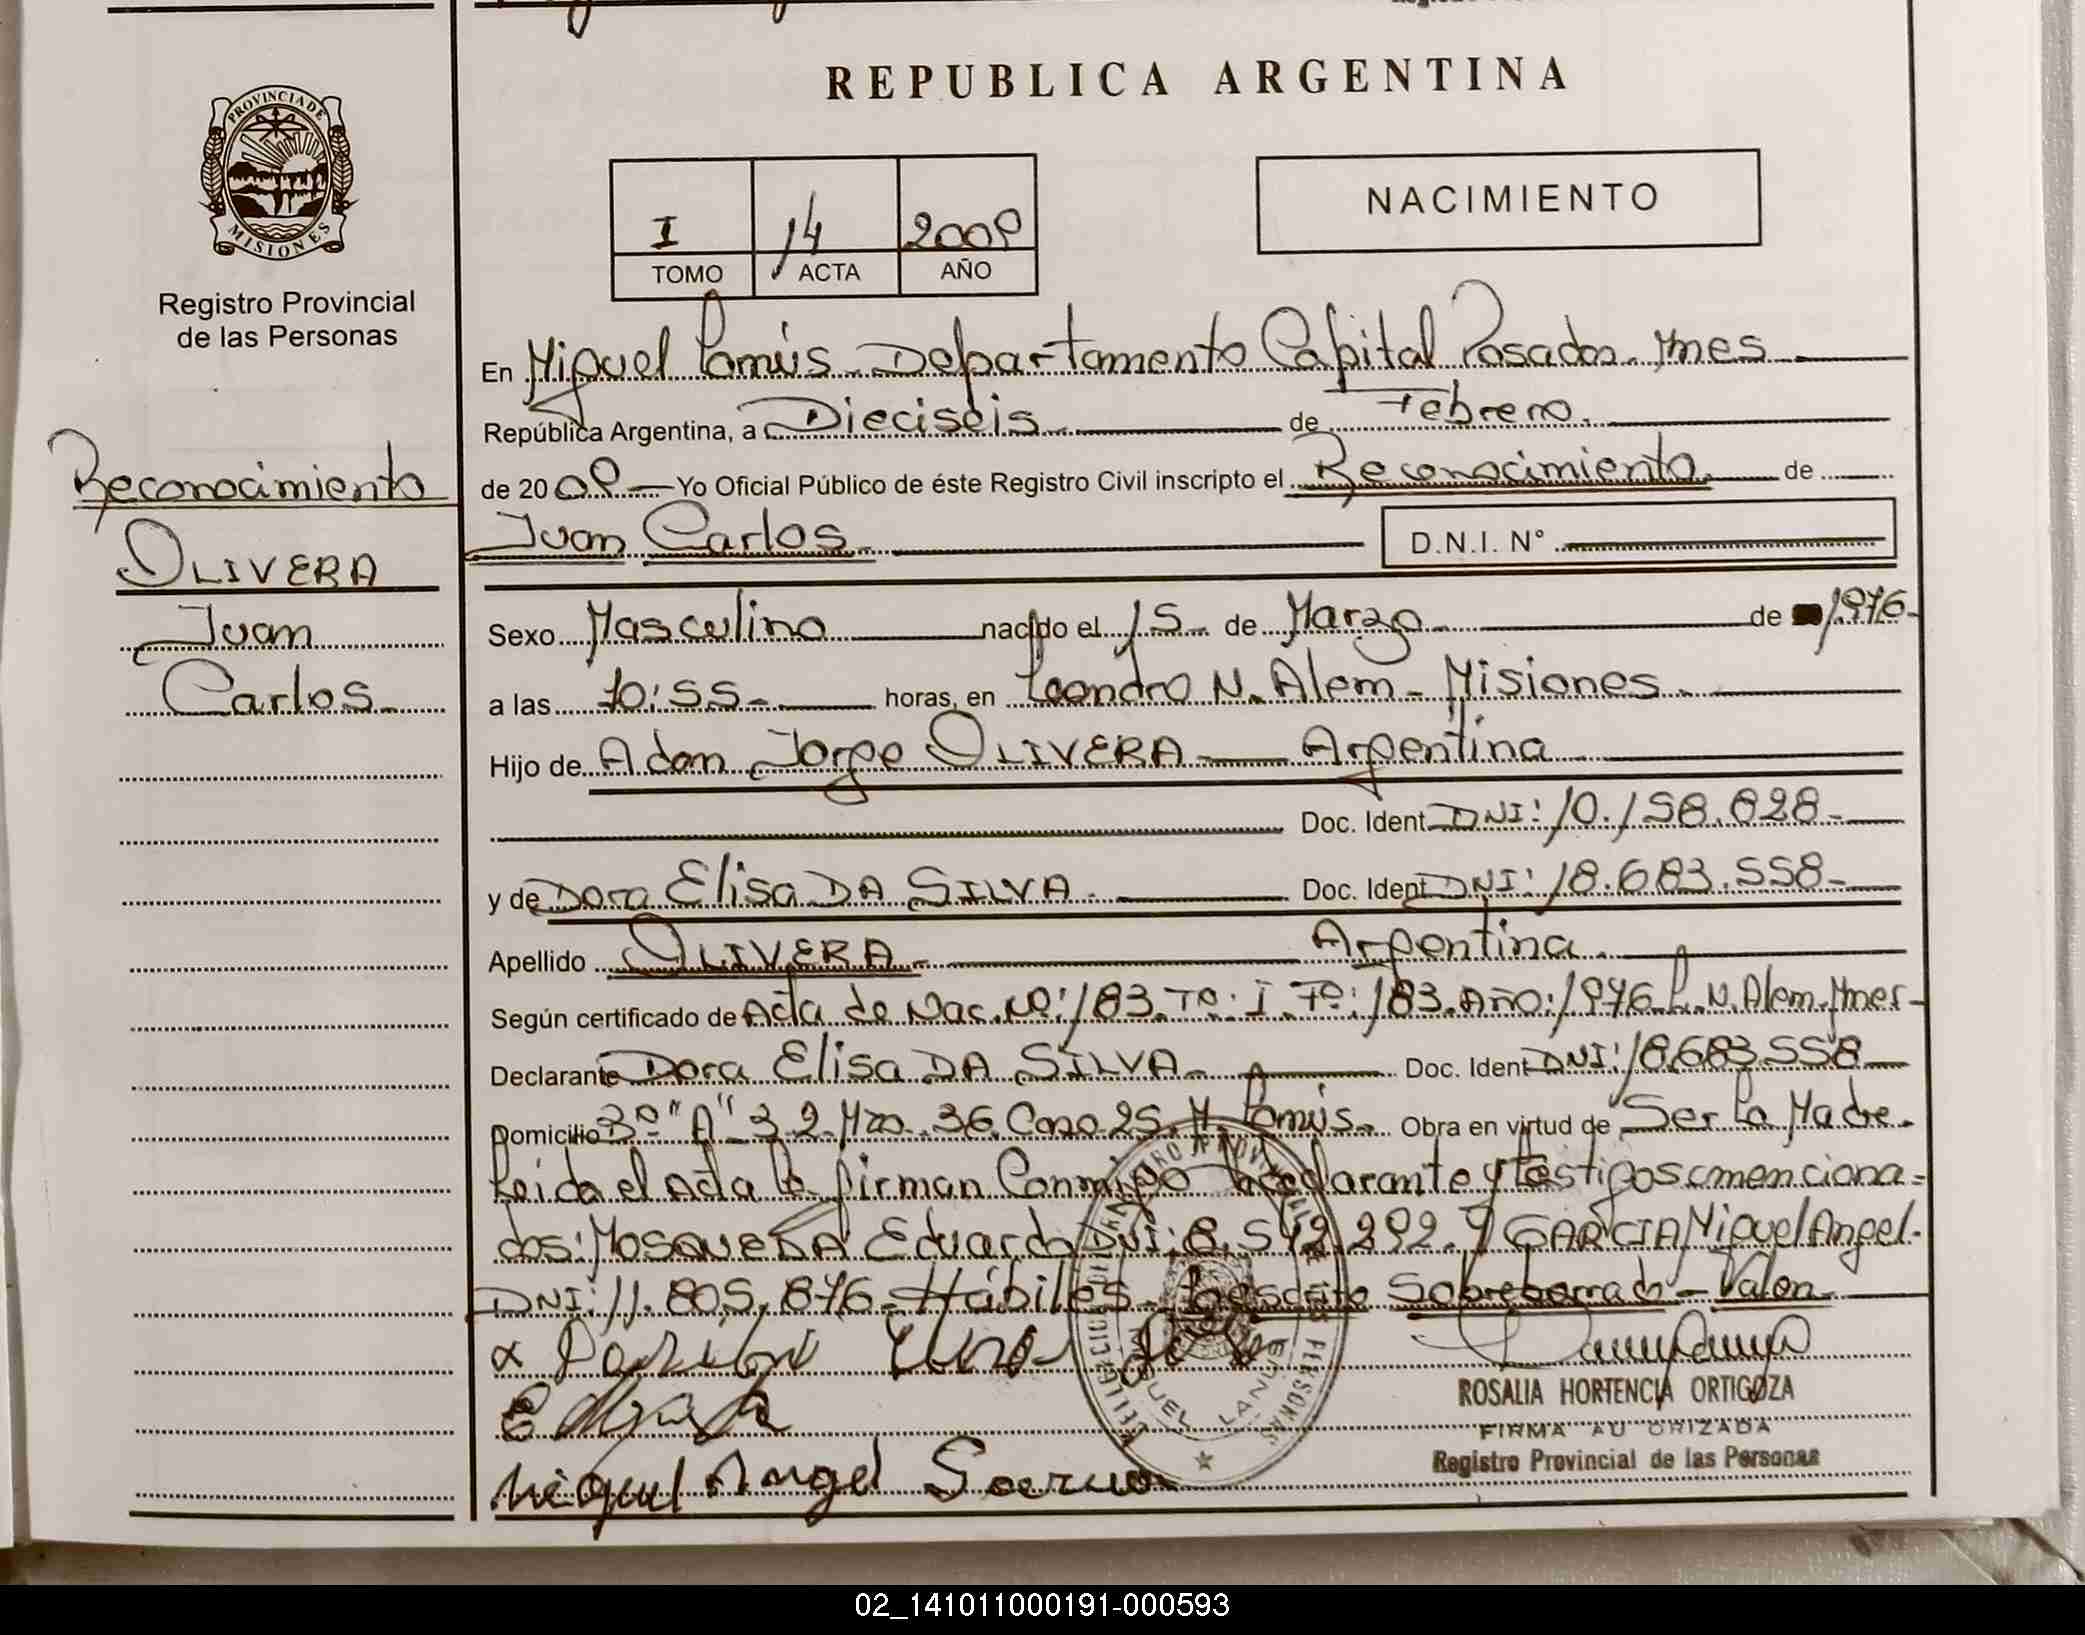 REPUBLICA ARGENTINA
PROVINCIA DE
MISIONES
Registro Provincial
de las Personas
I 14 2009
TOMO ACTA AÑO
NACIMIENTO
En Miguel Lanús. Departamento Capital Posadas. Mnes
República Argentina, a Dieciséis de Febrero.
de 2009 Yo Oficial Público de éste Registro Civil inscripto el Reconocimiento de
Juan Carlos D.N.I. N°
Reconocimiento
OLIVERA
Juan
Carlos
Sexo Masculino nacido el 15 de Marzo de 1976
a las 10:55 horas, en Leandro N. Alem - Misiones
Hijo de Adan Jorge OLIVERA Argentina
Doc. Ident DNI: 10.158.828
y de Dora Elisa DA SILVA Doc. Ident DNI: 18.683.558
Apellido OLIVERA Argentina
Según certificado de Acta de Nac. Nº: 183. Tº: I. Fº: 183. Año: 1976 L. N. Alem. Mnes
Declarante Dora Elisa DA SILVA Doc. Ident DNI: 18.683.558
Domicilio 3º "A" 32 Mza. 36 Casa 25. M. Lanús. Obra en virtud de Ser La Madre.
Leida el Acta la firman Conmigo declarante y testigos menciona-
dos: MOSQUEDA Eduardo DNI: 8.542.292. y GARCIA Miguel Angel.
DNI: 11.805.876 Hábiles Sobreborrado - Valen
ROSALIA HORTENCIA ORTIGOZA
FIRMA AU ORIZADA
Registro Provincial de las Personas
Miguel Angel
02_141011000191-000593